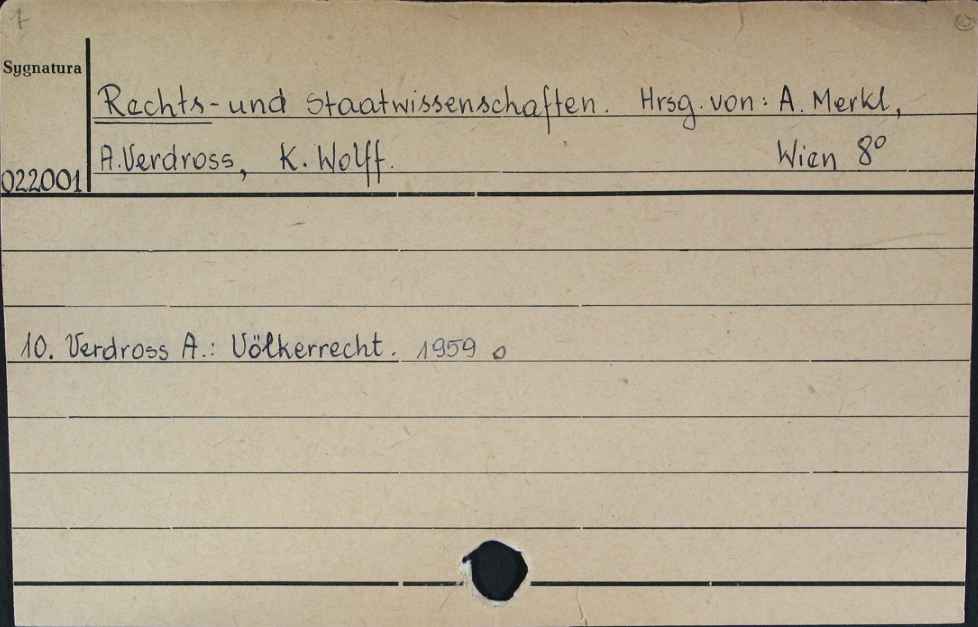 Sygnatura
Rechts- und Staatwissenschaften. Hrsg. von: A. Merkl,
A. Verdross, K. Wolff. Wien 8°
022001
10. Verdross A.: Völkerrecht. 1959 o